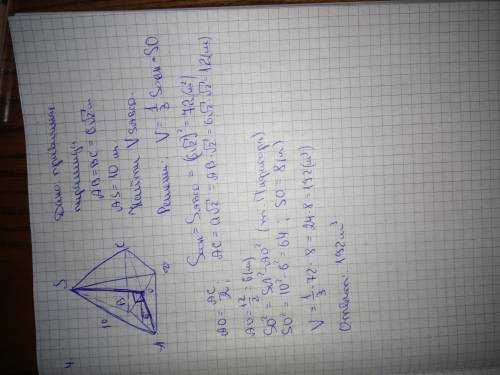 4
S
10
B
C
O
A
D
Дано: правильная
пирамида
AB=BC=6√2 м
AS=10 м
Найти V SABCD.
Решение: V=1/3 Sосн·SO
Sосн=SABCD=(6√2)²=72(м²)
AC=a√2=AB·√2=6√2·√2=12(м)
AO=AC/2;
AO=12/2=6(м)
SO²=SA²-AO² (т. Пифагора)
SO²=10²-6²=64; SO=8(м)
V=1/3·72·8=24·8=192(м³)
Ответ: 192 м³